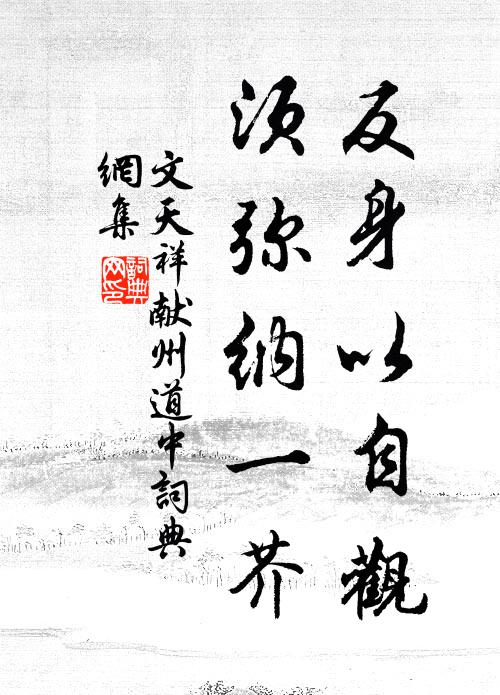 反身以自觀
須弥納一芥
文天祥献州道中詞典
網集
詞典
网印